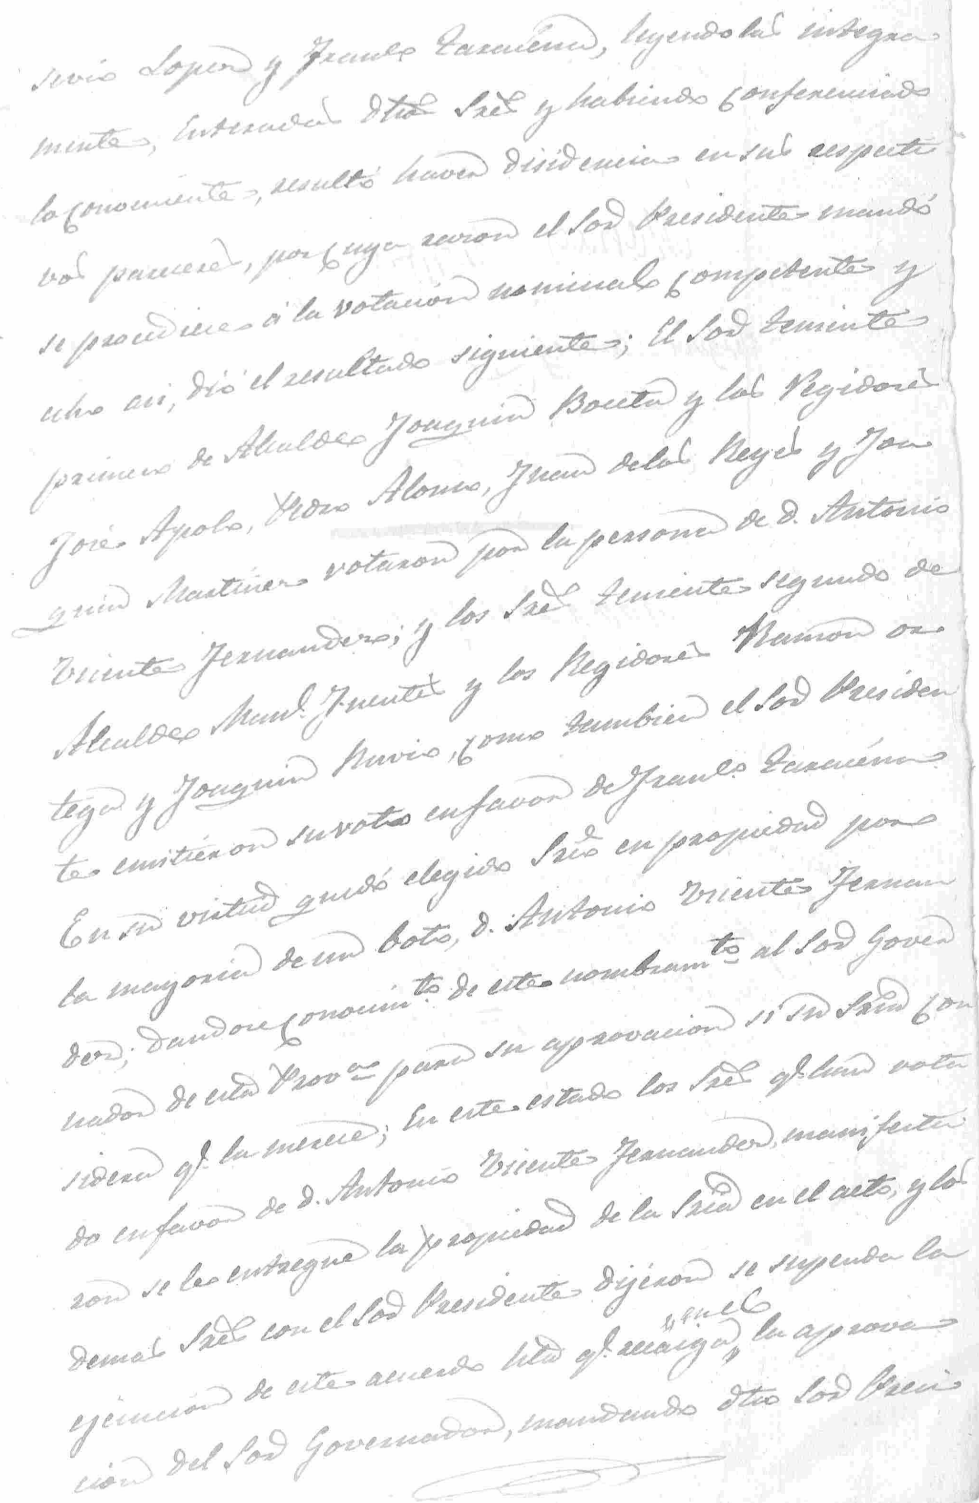 sevio Lopez y Franco. Taracena, leyendolas integra
mente, Enteradas dhos. Sres. y habiendo conferenciado
lo conveniente, resultó haver disidencia en sus respecti
vos pareceres, por cuya razon el Sor. Presidente mandó
se procediese á la votacion nominal competente y
echo asi, dió el resultado siguiente; El Sor. teniente
primero de Alcalde Joaquin Boceta y los Regidores
José Apolo, Pedro Alonso, Juan delos Reyes y Joa
quin Martinez votaron por la persona de d. Antonio
Vicente Fernandez; y los Sres. teniente segundo de
Alcalde Manl. Fuentes y los Regidores Ramon or
tega y Joaquin Ruvio, como tambien el Sor. Presiden
te emitieron su voto en favor de Franco. Taracéna
En su virtud quedó elegido Srio en propiedad por
la mayoria de un boto, d. Antonio Vicente Fernan
dez; dandose conocimto. de este nombramto. al Sor. Gover
nador de esta Prova. para su aprovacion si su Sria con
sidera qe. la merece; En este estado los Sres. qe. han vota
do en favor de d. Antonio Vicente Fernandez, manifesta
ron se le entregue la propiedad de la Sria en el acto, y los
demas Sres. con el Sor. Presidente dijéron se suspenda la
ejecucion de este acuerdo hta. qe. recaiga "en el" la aprova
cion del Sor. Governador, mandando dho Sor. Presi